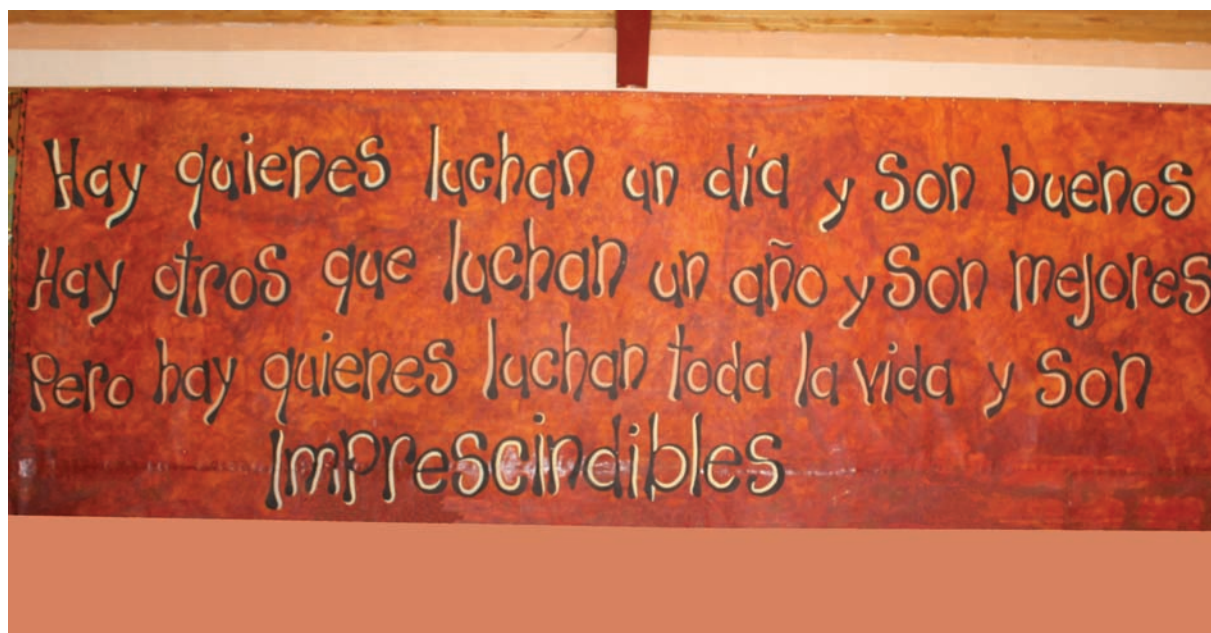 Hay quienes luchan un día y son buenos
Hay otros que luchan un año y son mejores
Pero hay quienes luchan toda la vida y son
Imprescindibles